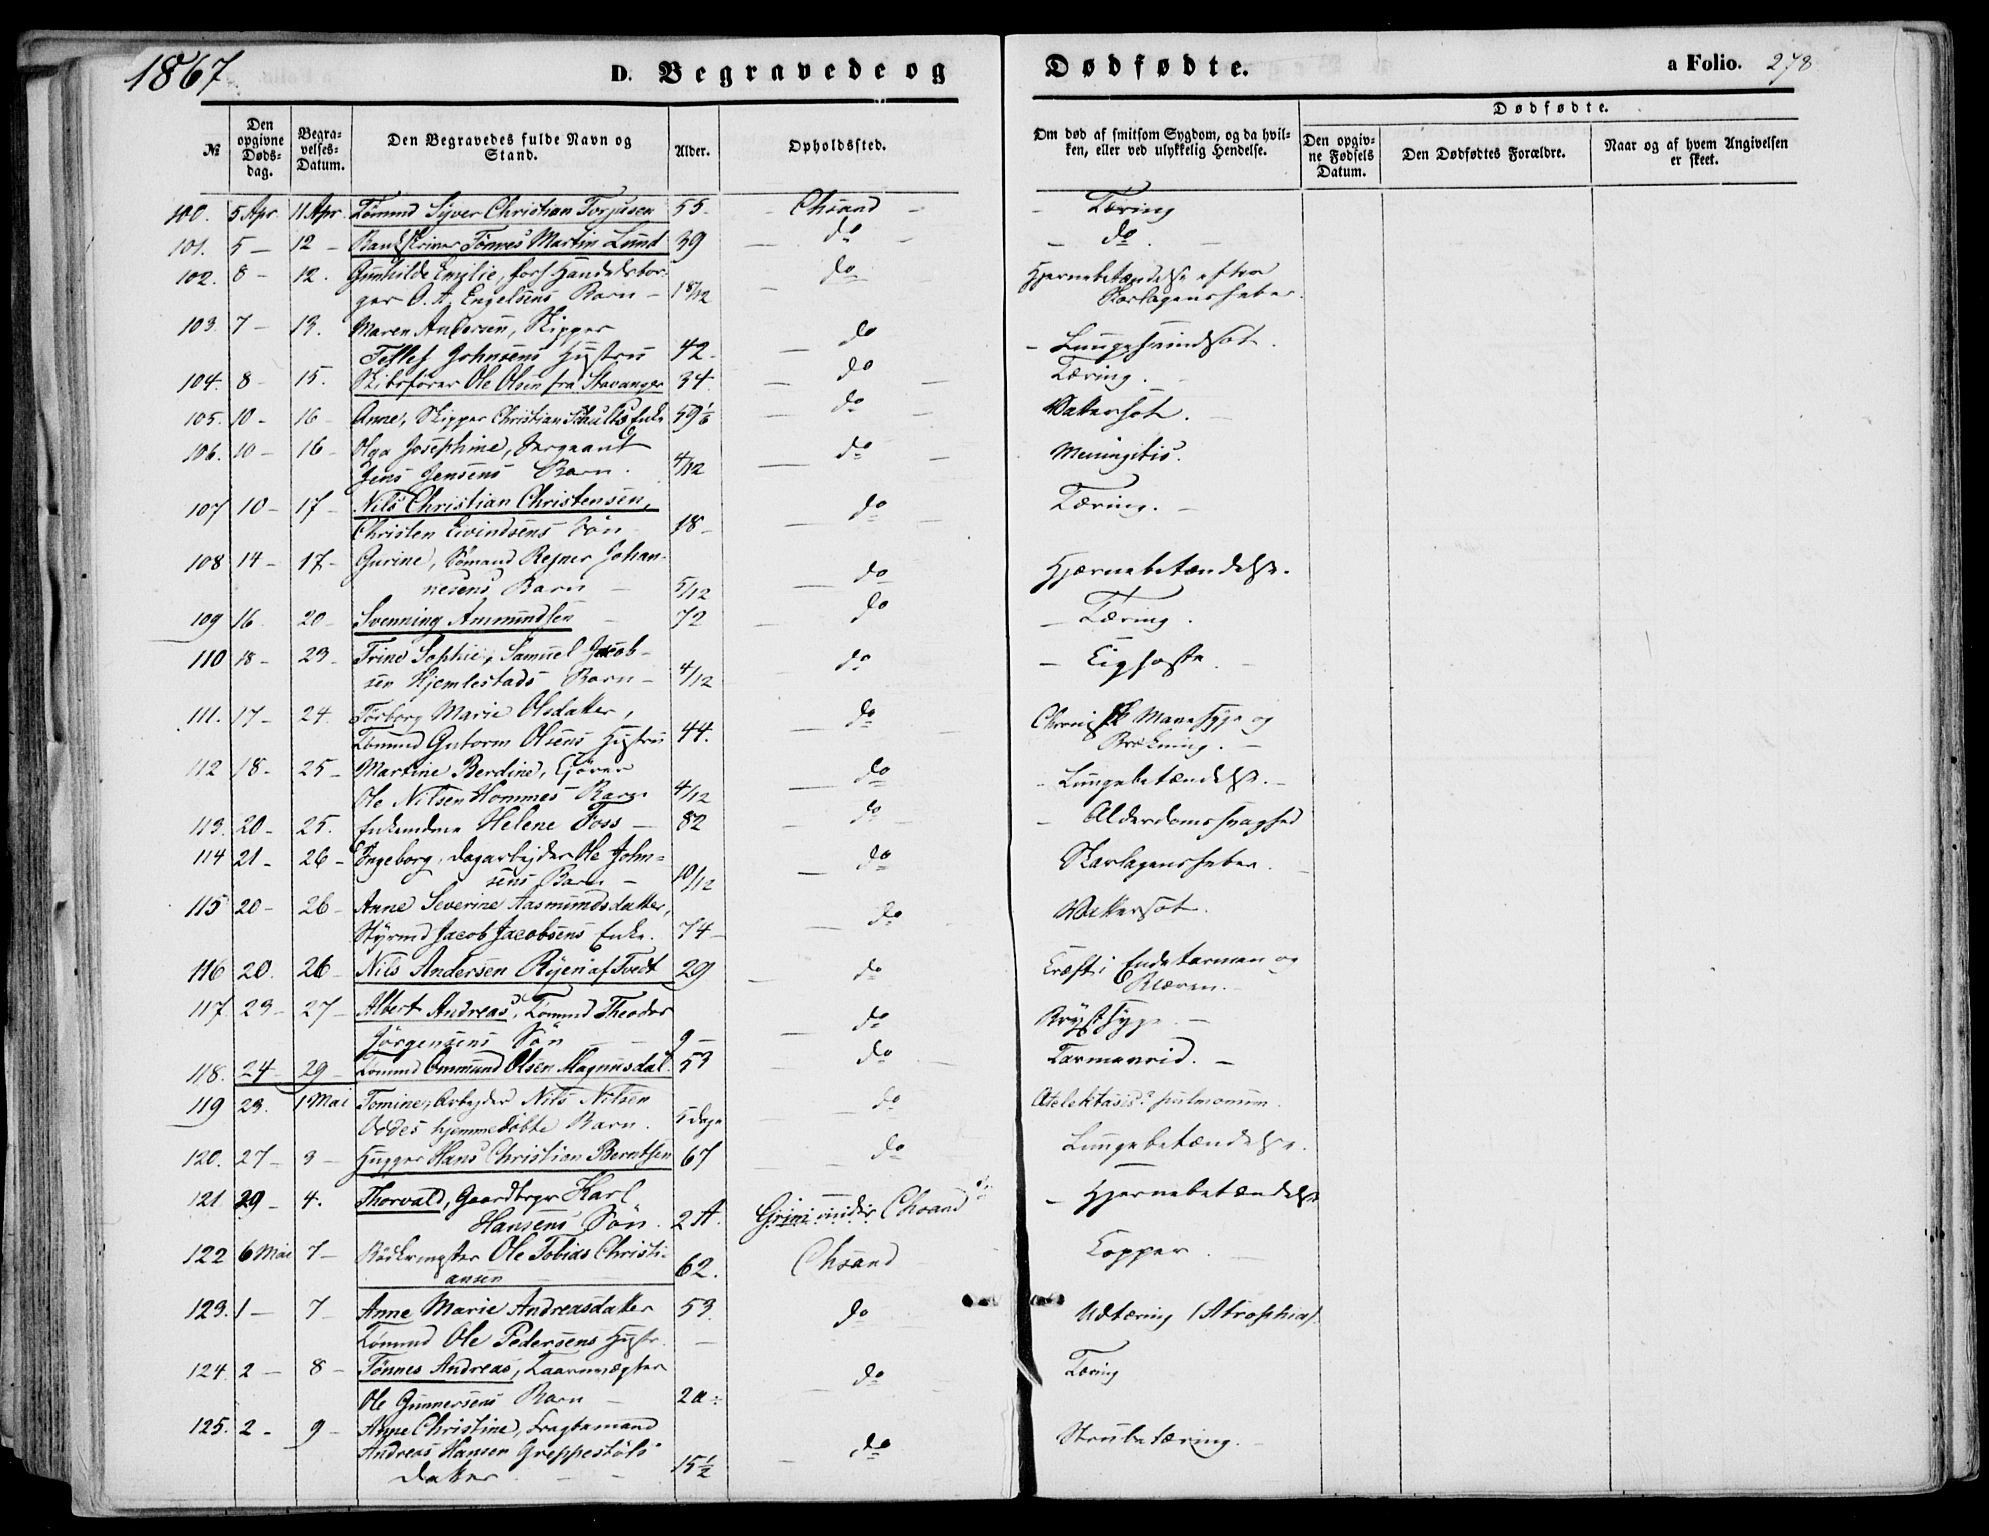 1867
D. Begravede og Dødfødte.
a Folio. 278
№
Den opgivne Døds-dag.
Begra-velses-Datum.
Den Begravedes fulde Navn og Stand.
Alder.
Opholdssted.
Om død af smitsom Sygdom, og da hvil-ken, eller ved ulykkelig Hendelse.
Dødfødte.
Den opgiv-ne Fødsels Datum.
Den Dødfødtes Forældre.
Naar og af hvem Angivelsen er skeet.
100. 5 Apr. 11 Apr. Tømmd Siver Christian Torjusen 55 - Chsand - Tæring
101. 5 - 12 - Bankskriver Tönnes Martin Lund 39 - do - do -
102. 8 - 12. Gunhilde Emilie, forh. Handelsbor- do Hjernebetændelse efter
ger O. A. Engelsens Barn - 1 8/12 Skarlagensfeber.
103. 7 - 13. Maren Andersen, Skipper do
Tellef Johnsens Hustru 42. - Lungesvindsot.
104. 8 - 15. Skibsfører Ole Olsen fra Stavanger 34 - do - Tæring.
105. 10 - 16 - Anne, Skipper Christian Schultz Enke 59 1/2 do Vattersot.
106. 10 - 16 - Olga Josephine, Sergeant do Meningitis.
Jens Jensens Barn. 4/12
107 10 - 17 - Nils Christian Christensen, do Tæring.
Christen Eivindsens Søn 18 -
108 14 - 17 - Gurine, Sömand Rejner Johan- do Hjærnebetændelse.
nesens Barn - 5/12
109 16 20 - Svenning Ammundsen 72 - do - Tæring.
110 18 - 23 - Trine Sophie, Samuel Jacob- do - Kighoste.
sen Hjemlestads Barn - 4/12
111. 17 - 24. Torborg Marie Olsdatter, do Chronisk Mavesyge og
Tømmd Gutorm Olsens Hustru 44. Brækning. -
112 18 - 25 - Martine Berdine, Kjører do - Lungebetændelse. -
Ole Nilsen Hommes Barn 4/12
113. 20 - 25. Enkemdme Helene Foss - 82 - do - Alderdomssvaghed
114 21 - 26 - Ingeborg, Dagarbejder Ole John- do Skarlagensfeber.
sens Barn - 10/12
115 20 - 26 - Anne Severine Aasmundsdatter, do Vattersot.
Styrmd Jacob Jacobsens Enke. 74 -
116 20. 26 - Nils Andersen Ryen af Tvedt 29 do Kræft i Endetarmen og
Blæren. -
117. 23 - 27 - Albert Andreas, Tømmd Theodor do Brystsyge -
Jörgensens Søn 9 -
118. 24 - 29 - Tømmd Ommund Olsen Magnusdal. 53 do Tarmevrid. -
119 23. 1 Mai Tomine, Arbejder Nils Nilsen do Atelektasis pulmonum.
Oddes hjemmedöbte Barn. 5 dage
120. 27 - 3 - Hugger Hans Christian Berntsen 67 do Lungebetændelse.
121 29 - 4. Thorvald, Gaardbrgr Karl - Hjernebetændelse
Hansens Søn. 2 A. Grim under Chsand
122 6 Mai 7 - Bødkermester Ole Tobias Christi- Chsand Kopper.
ansen 62.
123. 1 - 7 Anne Marie Andreasdatter 53. do Udtæring (Atrophia)
Tømmd Ole Pedersens Hustr.
124. 2 - 8 - Tönnes Andreas, Taarnvægter do Tæring
Ole Gunnersens Barn - 2 a
125. 2 - 9 - Anne Christine, Fragtemand Strubetæring. -
Andreas Hansen Greppestöls do
Datter - 15 1/2